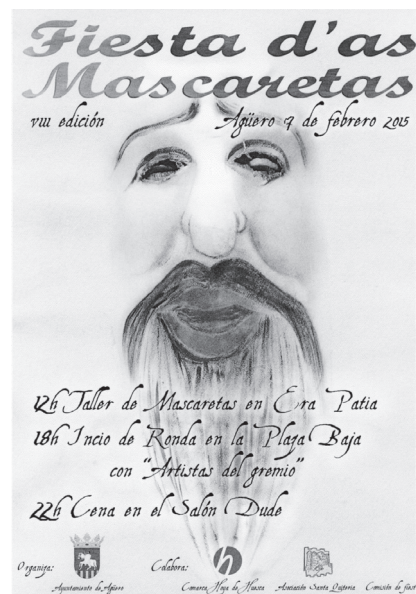 Fiesta d'as
Mascaretas
VIII edición
Agüero 7 de febrero 2015
12h Taller de Mascaretas en Era Patia
18h Incio de Ronda en la Plaza Baja
con "Artistas del gremio"
22h Cena en el Salón Dude
Organiza:
Ayuntamiento de Agüero
Colabora:
Comarca Hoya de Huesca
Asociación Santa Quiteria
Comisión de fiest